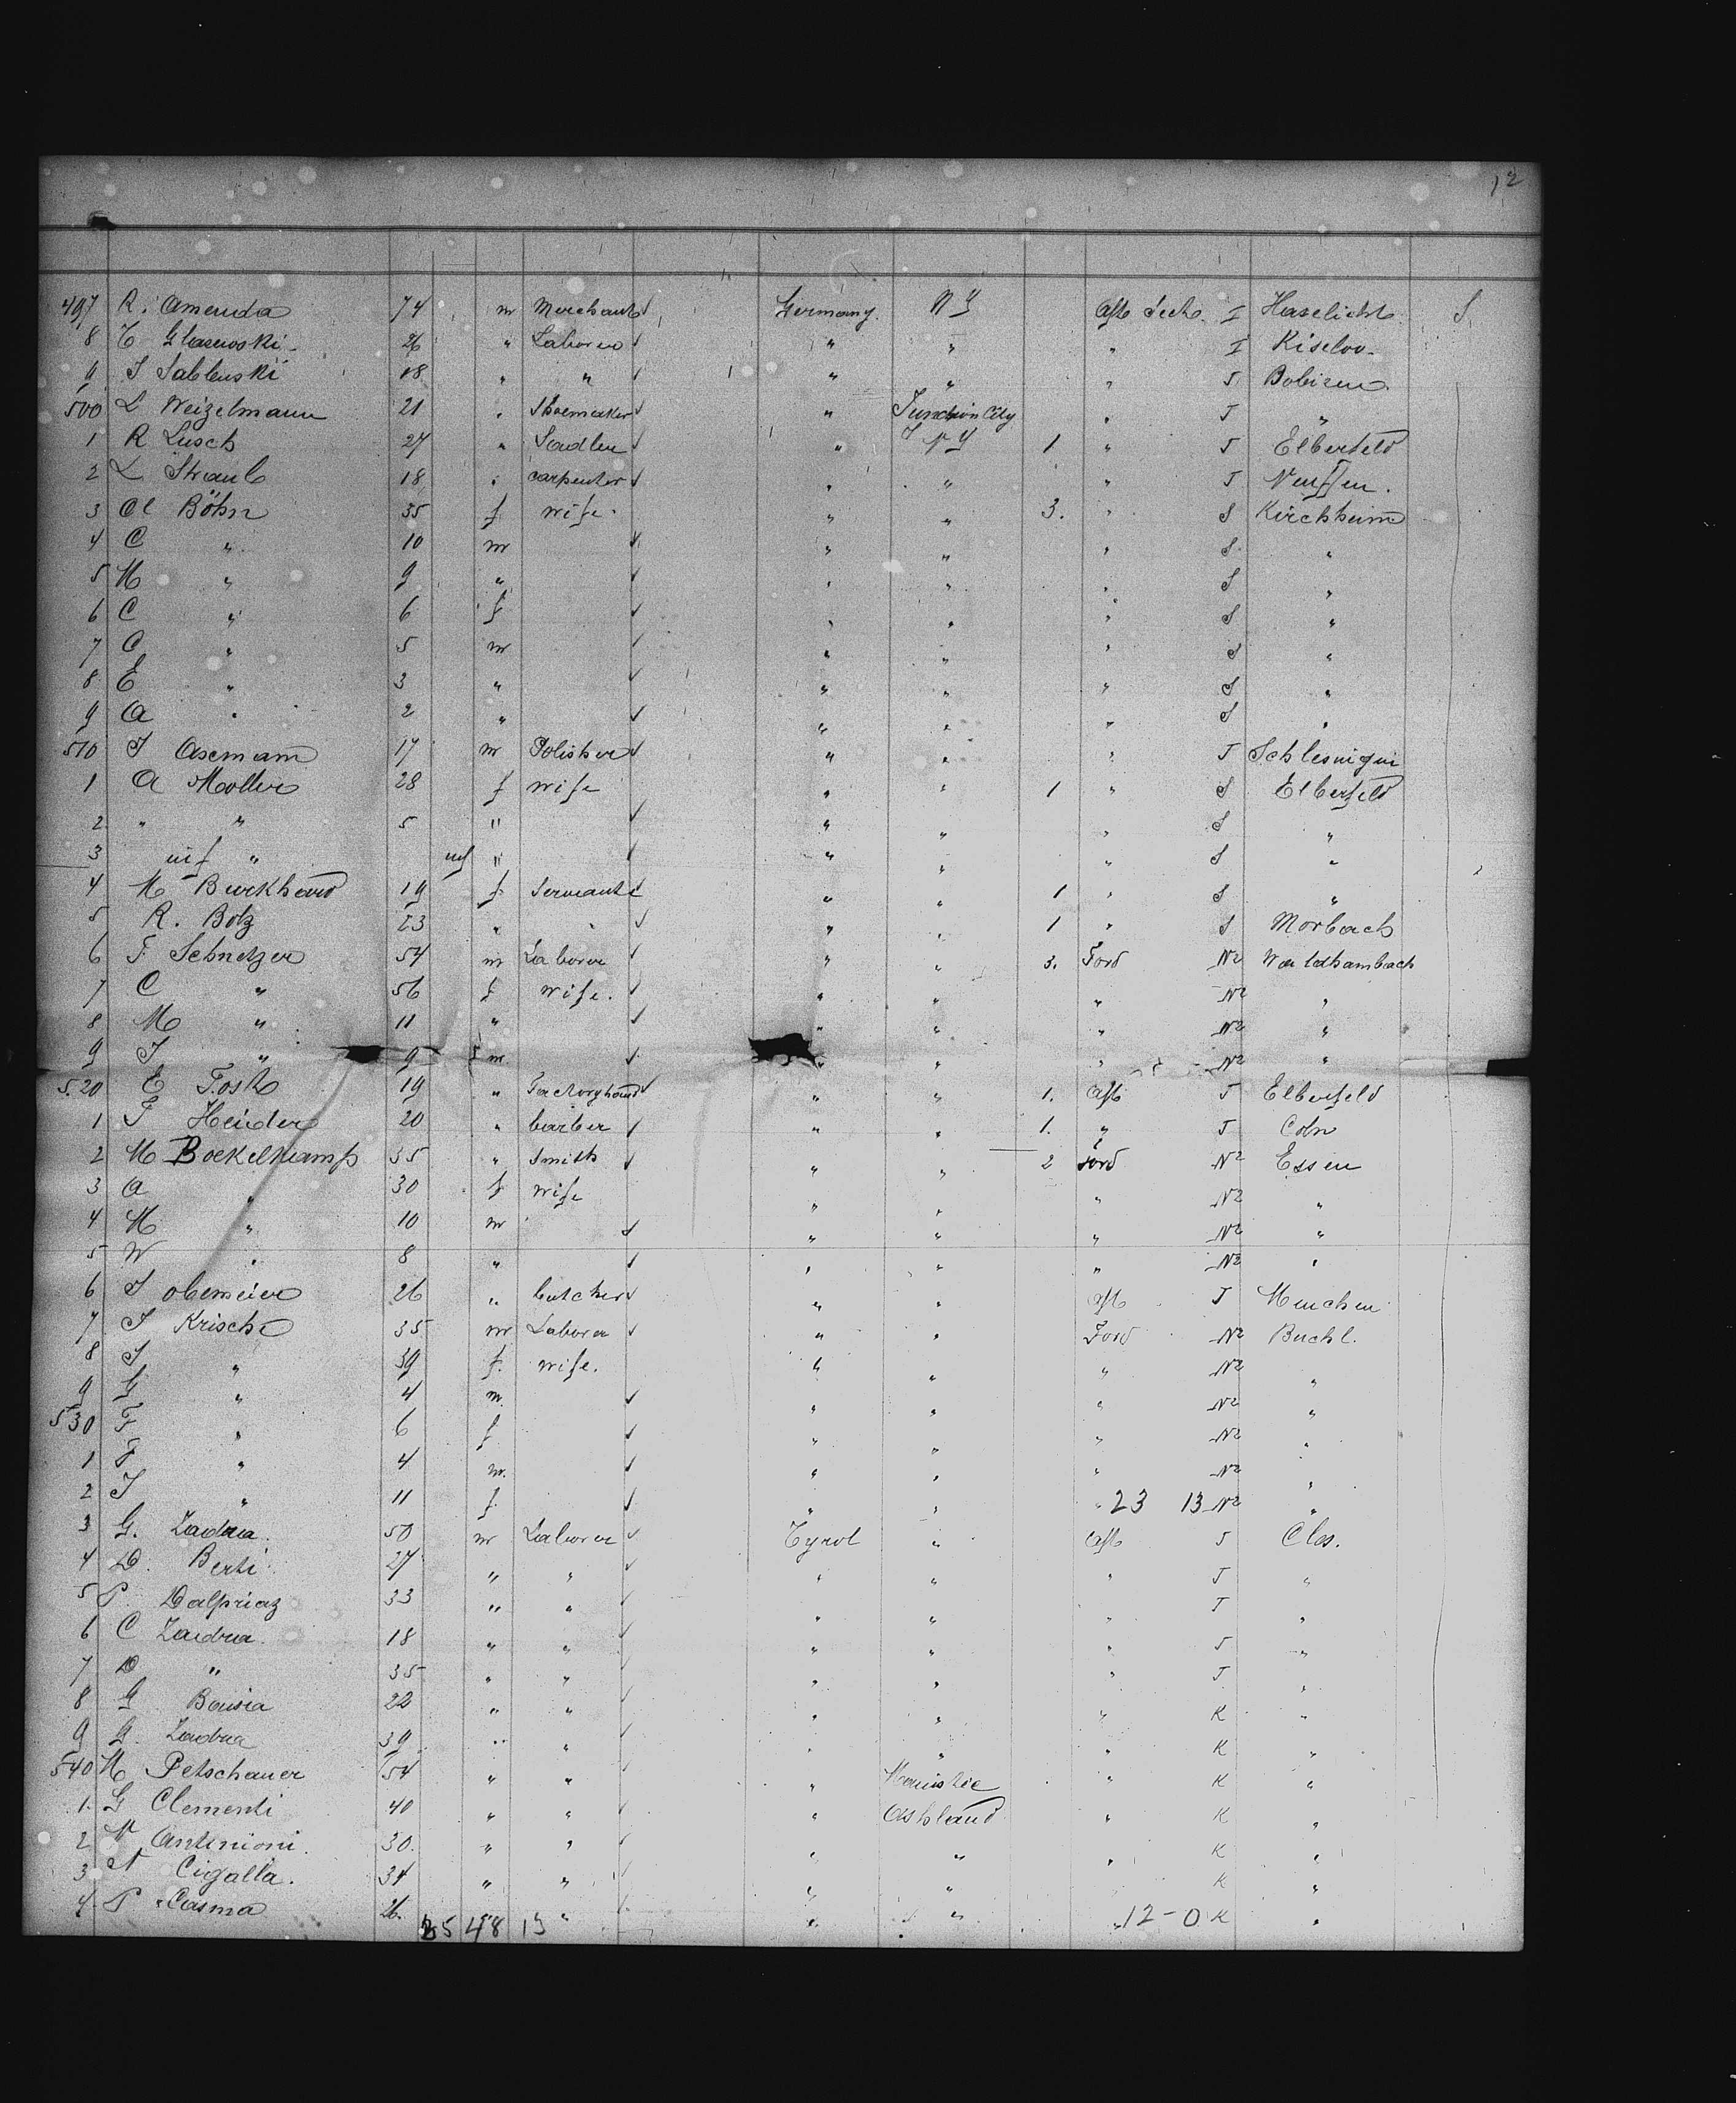 12
497 R. Amenda 74 m Merchant Germany. N Y Aft Deck I Haselicht S
8 T Glasewski 26 " Laborer " " " I Kiselow
9 J Sablenski 18 " " " " " J Bobizen
500 L Weizelmann 21 " Shoemaker " Junction City " J "
1 R Lusch 27 " Sadler " N Y 1 " J Elberfeld
2 L Straub 18 " carpenter " " " J Neuffen.
3 Cl Böhn 35 f wife " " 3. " S Kirchheim
4 C " 10 m " " " S "
5 M " 9 " " " " S "
6 C " 6 f " " " S "
7 C " 5 m " " " S "
8 E " 3 " " " " S "
9 A " 2 " " " " S "
510 J Asemann 17 m Polisher " " " J
1 A Moller 28 f wife " " 1 " S Elberfeld
2 " " 5 " " " " S "
3 inf " inf " " " " S "
4 M Burkhard 19 f Servant " " 1 " S "
5 R. Botz 23 " " " " 1 " S Morbach
6 F Schnetzer 54 m Laborer " " 3. Ford N2 Waldhambach
7 C " 56 f wife. " " " N2 "
8 M " 11 " " " " N2 "
9 J " 9 m " " " N2 "
520 E Tosh 19 " Factoryhand " " 1. Aft J Elberfeld
1 F Heider 20 " barber " " 1. " J Coln
2 M Boekelkamp 35 " Smith " " 2 Ford N2 Essen
3 A " 30 f wife " " " N2 "
4 M " 10 m " " " N2 "
5 W " 8 " " " " N2 "
6 J obemeier 26 " butcher " " Aft J Menchen
7 J Krische 35 m Laborer " " Ford N2 Buchl.
8 J " 39 f. wife. " " " N2 "
9 G " 4 m. " " " N2 "
530 F " 6 f " " " N2 "
1 F " 4 m. " " " N2 "
2 J " 11 f " " " 23 13 N2 "
3 G. Zadra. 50 m Laborer Tyrol " Aft J Cles.
4 D. Berti 27 " " " " " J "
5 P. Dalpriaz 33 " " " " " J "
6 C Zadra. 18 " " " " " J "
7 D " 35 " " " " " J "
8 G Bousia 22 " " " " " K "
9 G. Zadra 39 " " " " " K "
540 M Petschauer 54 " " " Manistie " K "
1. G Clementi 40 " " " Ashland " K "
2 N Antinioni. 30. " " " " " K "
3 N Cigalla. 34 " " " " " K "
4. P Casma 26. " " " " " 12-0 K "
25 48 13